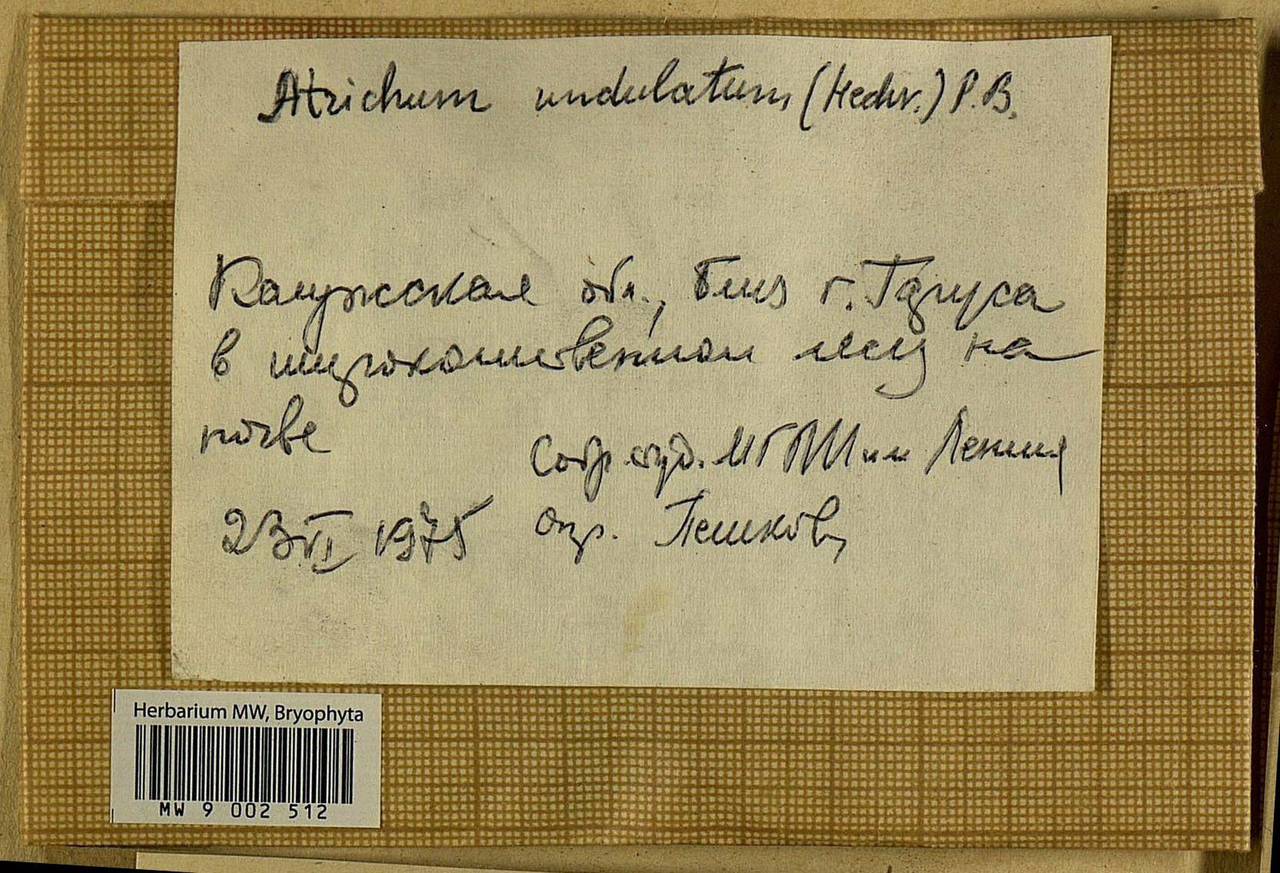 Atrichum undulatum (Hedw.) P.B.
Калужская обл., близ г. Таруса
в широколиственном лесу на
почве
Собр. студ. МГПИ им Ленина
23 VI 1975 опр. Пешкова
Herbarium MW, Bryophyta
MW 9 002 512